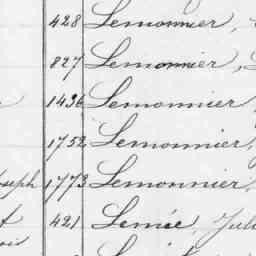 428 Lemonnier,
827 Lemonnier,
1436 Lemonnier,
1752 Lemonnier,
oseph 1773 Lemonnier,
t 421 Lemée, Juli